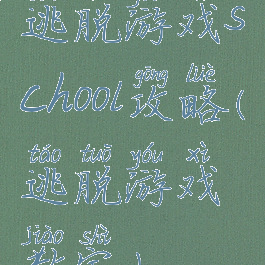 逃脱游戏s
gōng lüè
chool攻略(
táo tuō yóu xì
逃脱游戏
jiào shì
教室)